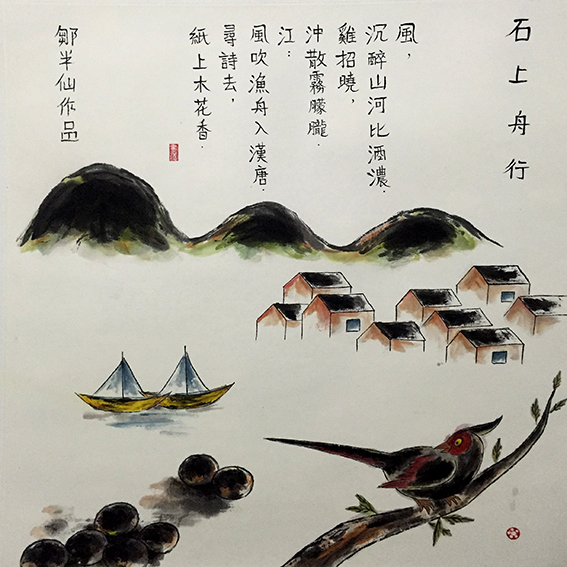 石上舟行
風，
沉醉山河比酒濃．
雞招曉，
沖散霧朦朧．
江：
風吹漁舟入漢唐．
尋詩去，
紙上木花香．
鄒半仙作品